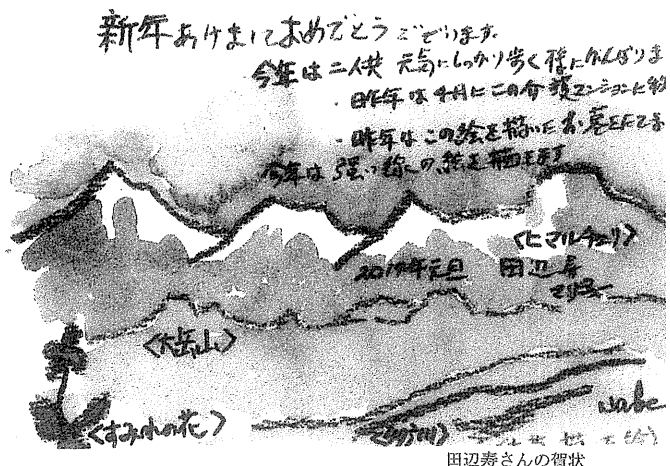 新年あけましておめでとうございます.
今年は二人共 元気にしっかり歩く様にがんばりま
・昨年は4月にこの分譲マンションに
・昨年はこの絵を描いたお墓をたてま
今年は強い線の絵を描きます
<ヒマルチュリ>
元旦 田辺寿
マリ子
<大岳山>
<すみれの花>
nabe
田辺寿さんの賀状